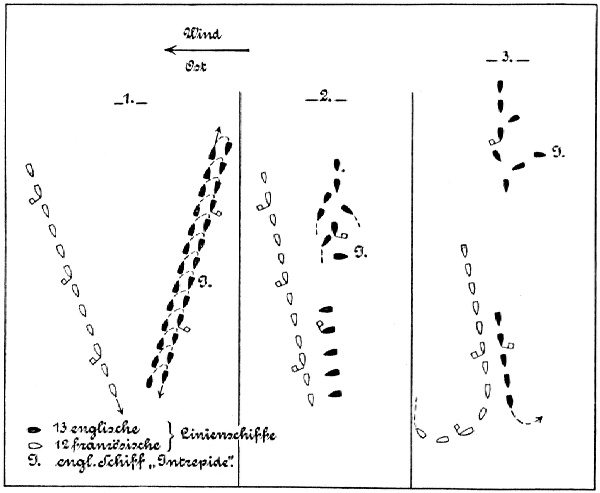 Wind
Ost
1.
2.
3.
J.
J.
J.
13 englische
12 französische } Linienschiffe
J. engl. Schiff „Intrepide“.